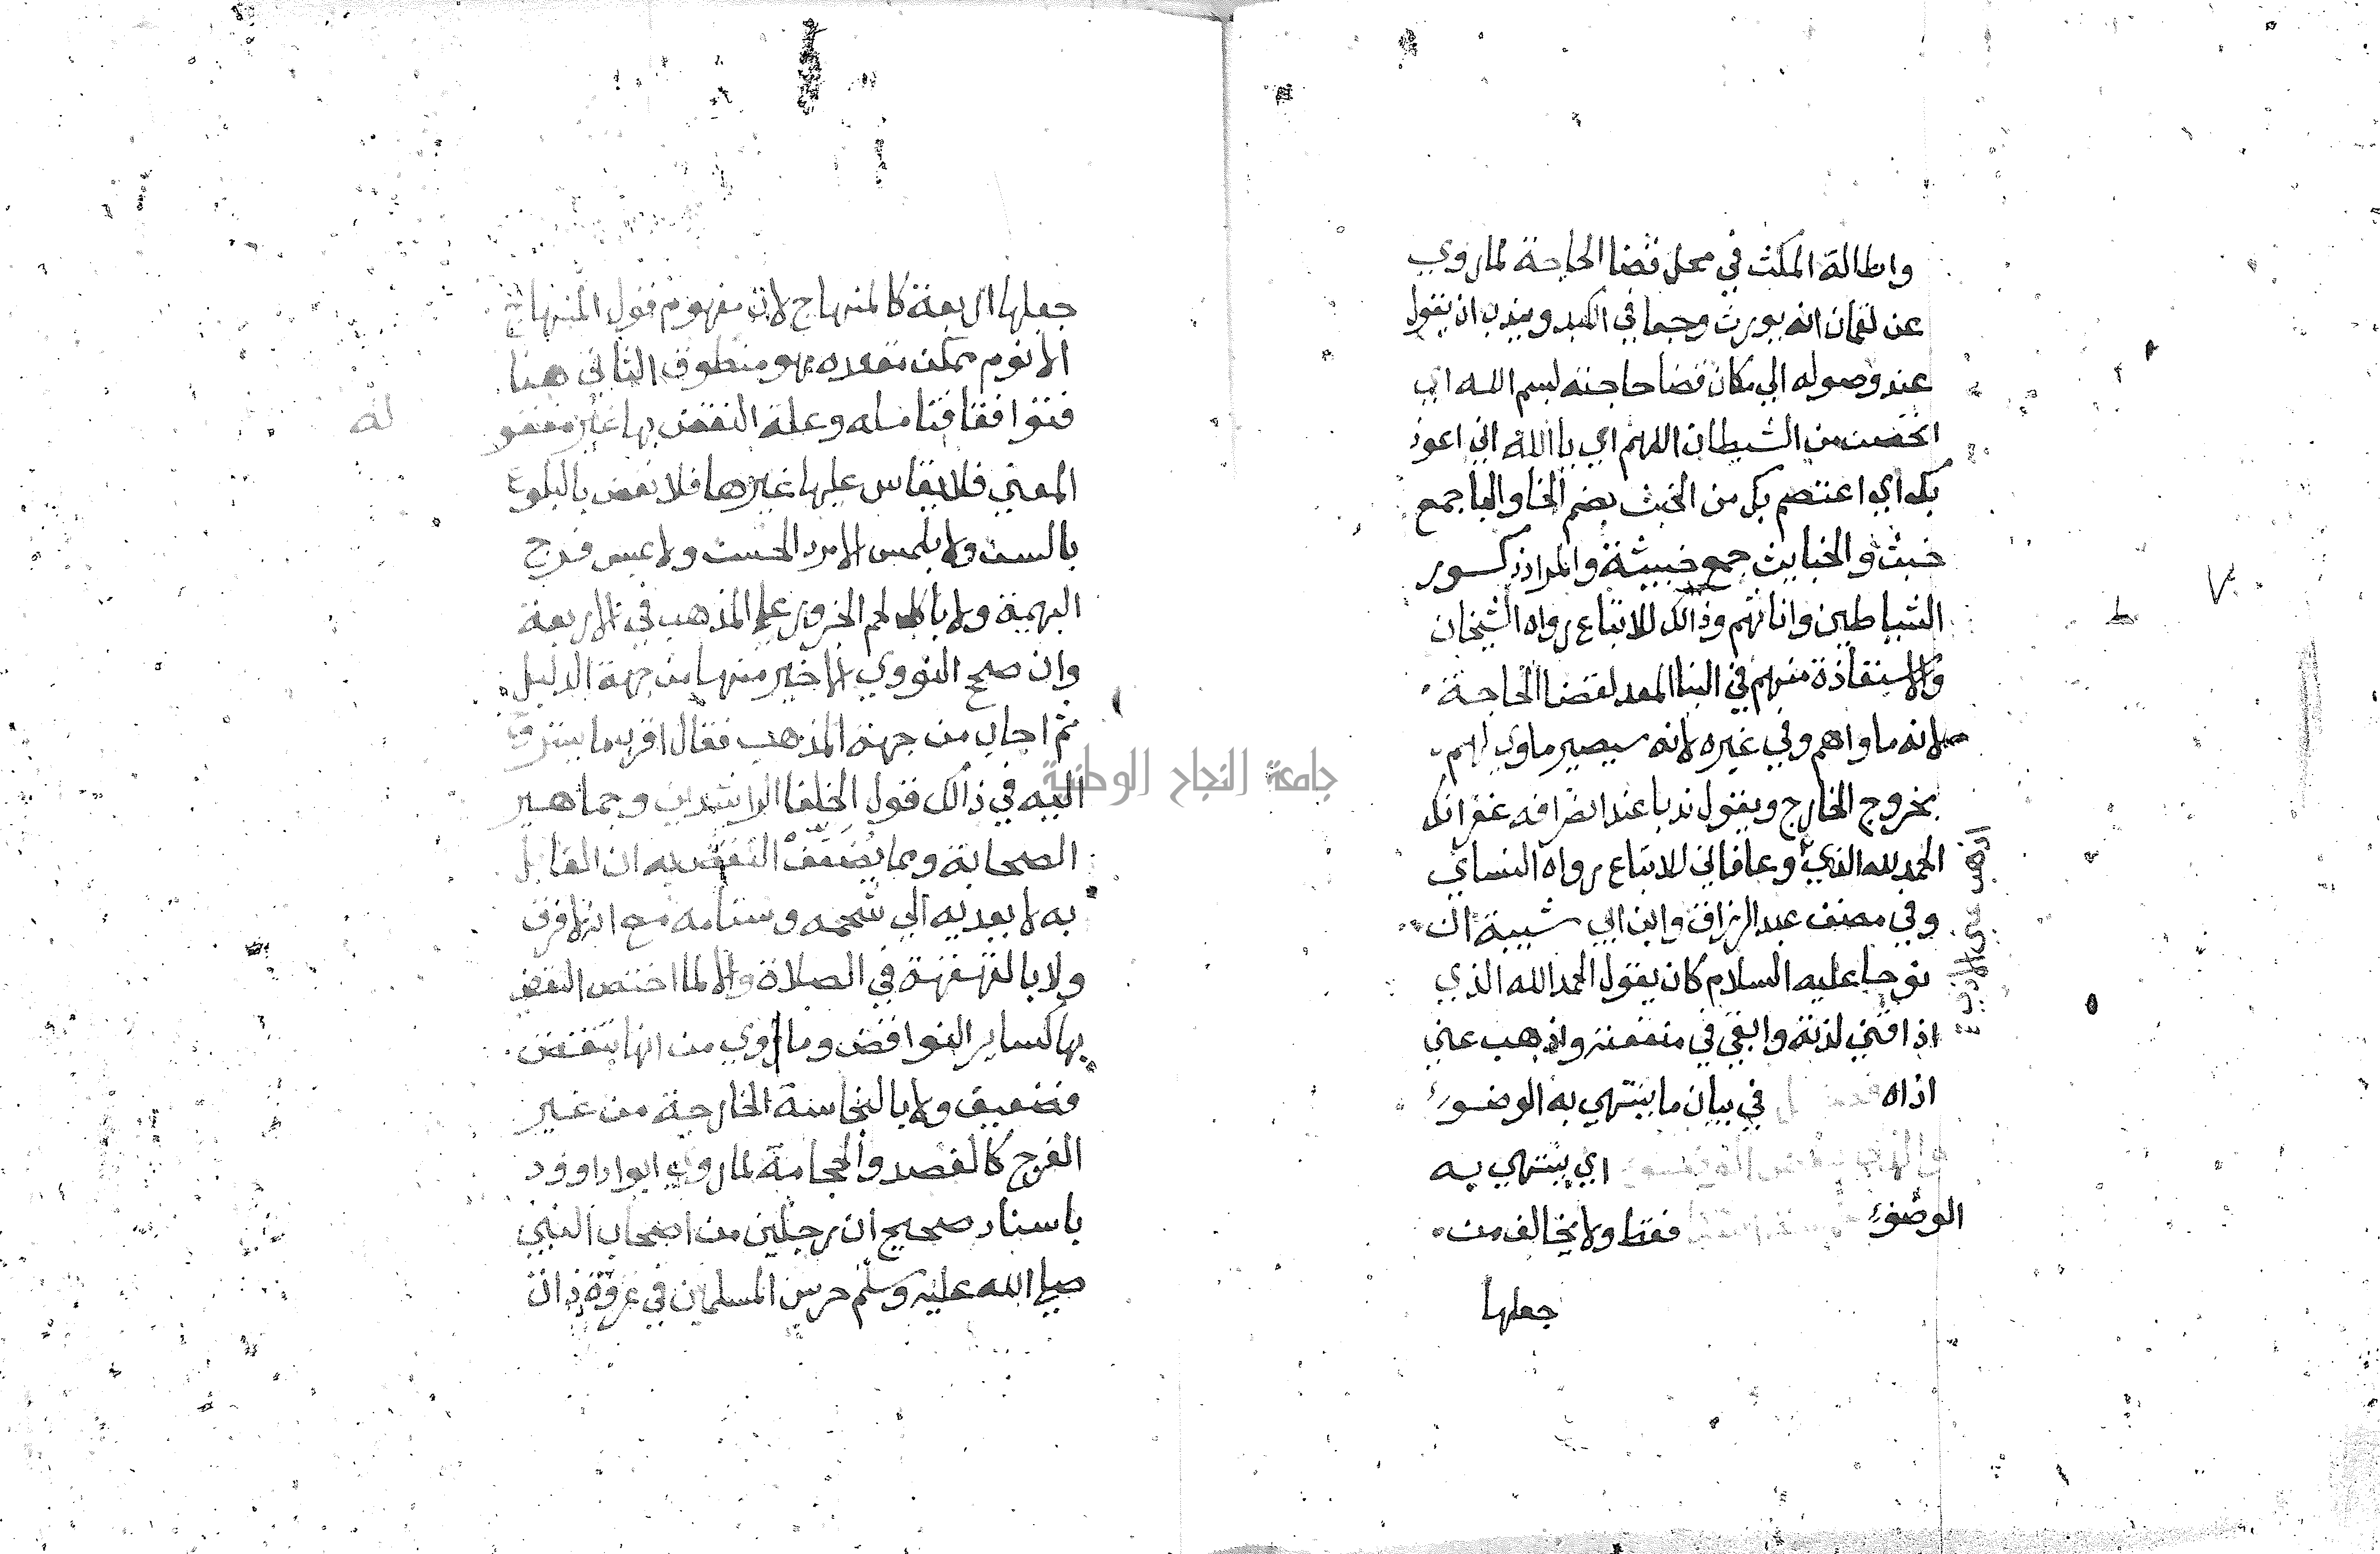 واطالة المكث في محل قضا الحاجة لما روي
عن لقمان انه يورث وجعا في الكبد ويندب ان يقول
عند وصوله الي مكان قضا حاجته بسم الله اي
اتحصن من الشيطان اللهم اي يا الله اني اعوذ
بك اي اعتصم بك من الخبث بضم الخا والبا جمع
خبيث والخبايث جمع خبيثة والمراد ذكور
الشياطين واناثهم وذالك للاتباع رواه الشيخان
والاستعاذة منهم في البنا المعد لقضا الحاجة
لانه ماواهم وفي غيره لانه سيصير ماوي لهم
بخروج الخارج ويقول ندبا عند انصرافه غفرانك
الحمد لله الذي وعافاني للاتباع رواه النساي
اذهب عني الاذي
وفي مصنف عبد الرزاق وابن ابي شيبة ان
نوحا عليه السلام كان يقول الحمد الله الذي
اذاقني لذته وابقي في منفعته واذهب عني
اذاه فصل في بيان ما ينتهي به الوضوء
اي ينتهي به
الوضوء فقط ولا يخالف من
جعلها
جعلها اربعة كالمنهاج لان مفهوم قول المنهاج
الا نوم ممكن مقعده هو منطوق الثاني هنا
فتوافقا فتامله وعلة النقض بها غير معقولة
المعني فلا يقاس عليها غيرها فلا نقض بالبلوغ
بالسن ولا بلمس الامرد الحسن ولا بمس فرج
البهيمة ولا باكل لحم الجزور علي المذهب في الاربعة
وان صحح النووي الاخير منها من جهة الدليل
ثم اجاب من جهة المذهب فقال اقرب ما يستروح
اليه في ذالك قول الخلفا الراشدين وجماهير
الصحابة ومما يضعف النقض به ان القايل
به لا يعديه الي شحمه وسنامه مع انه لا فرق
ولا بالقهقهة في الصلاة والا لما اختص النقض
بها كساير النواقض وما روي من انها تنقض
فضعيف ولا بالنجاسة الخارجة من غير
الفرج كالفصد والحجامة لما روي ابوا داوود
باسناد صحيح ان رجلين من اصحاب النبي
صلي الله عليه وسلم حرس المسلمين في غزوة ذات
جامعة النجاح الوطنية